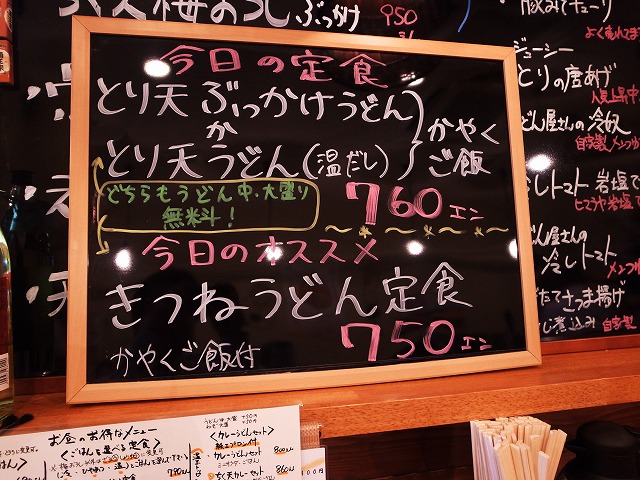 ぶっかけ 950
今日の定食
とり天ぶっかけうどん
か
とり天うどん(温だし)
かやく
ご飯
どちらもうどん中、大盛り
無料!
760エン
今日のオススメ
きつねうどん定食
750エン
かやくご飯付
よく売れてます
ジューシー
とりの唐あげ
人気上昇中
どん屋さんの冷奴
自家製
冷しトマト 岩塩で
どん屋さんの
冷しトマト
たてさつま揚げ
だし煮込み 自家製
お昼のお得なメニュー
<ごはんを選べる定食>
<カレーうどんセット>
紙エプロン付
カレーうどんセット 800
ちく天カレーセット 860